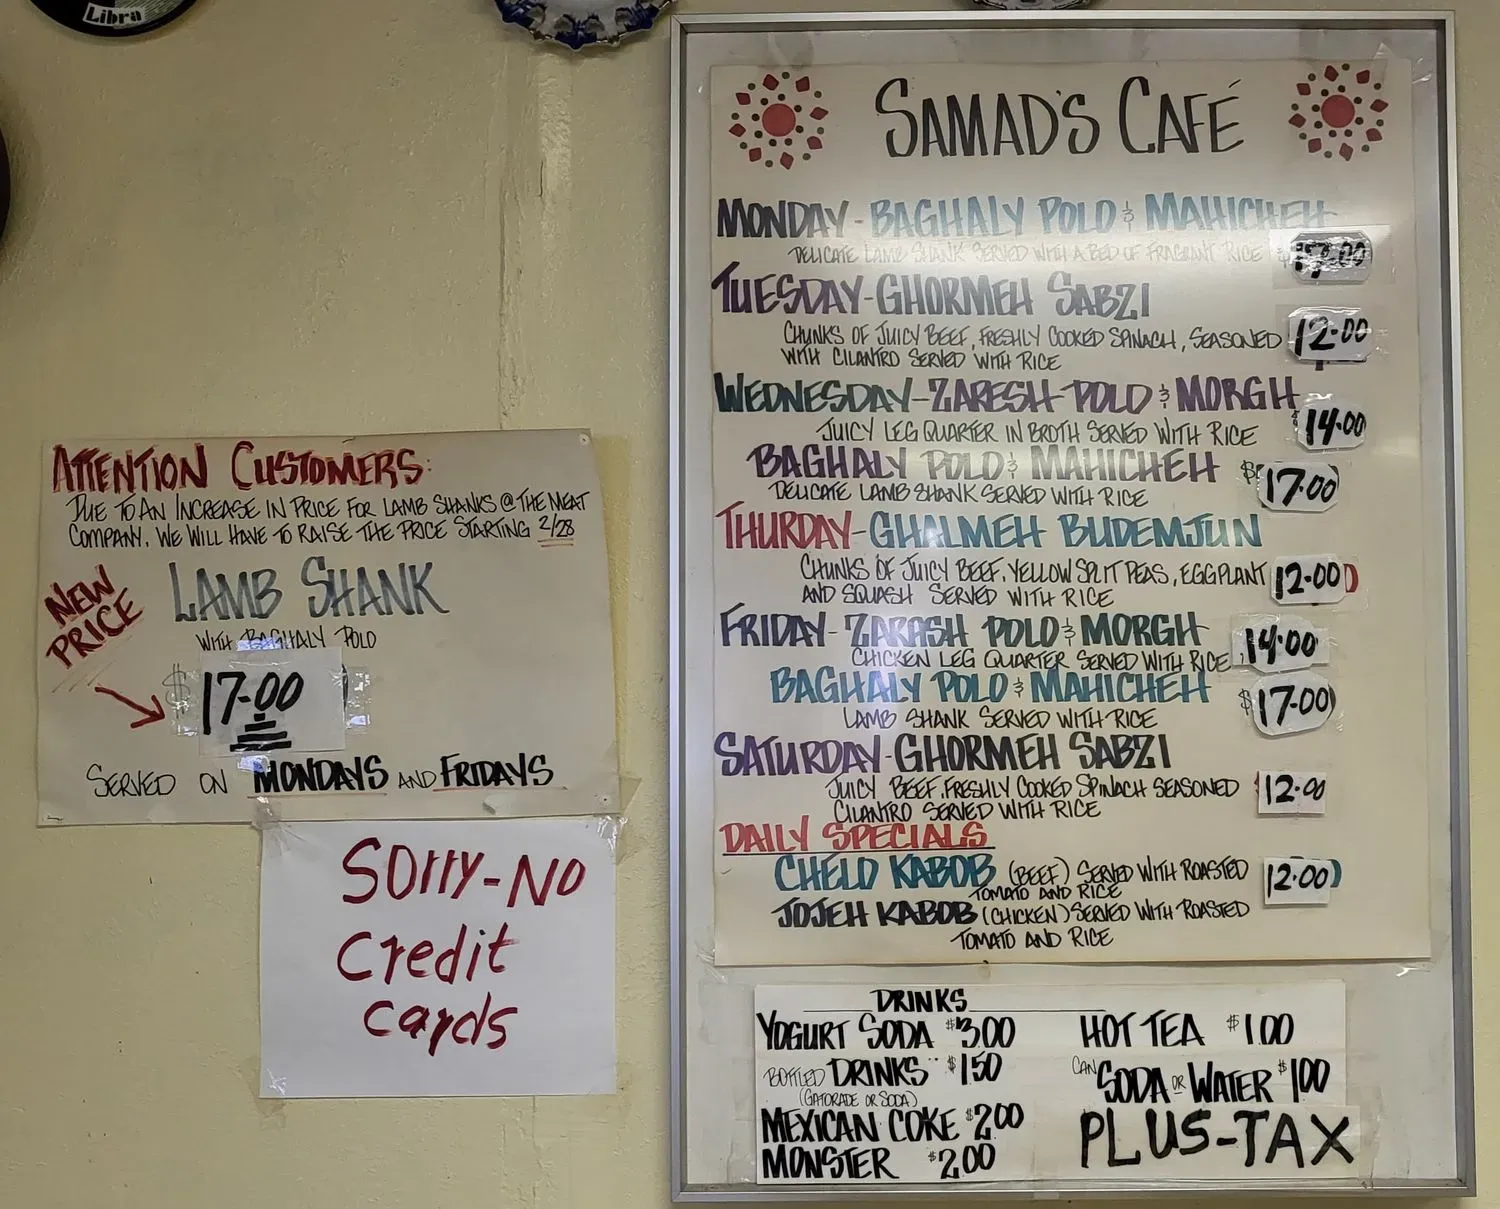 Libra
ATTENTION CUSTOMERS:
DUE TO AN INCREASE IN PRICE FOR LAMB SHANKS @ THE MEAT
COMPANY. WE WILL HAVE TO RAISE THE PRICE STARTING 2/28
NEW
PRICE
LAMB SHANK
WITH BAGHALY POLO
$17.00
SERVED ON MONDAYS AND FRIDAYS
SORRY-NO
credit
cards
SAMAD'S CAFÉ
MONDAY-BAGHALY POLO & MAHICHEH
DELICATE LAMB SHANK SERVED WITH A BED OF FRAGRANT RICE $17.00
TUESDAY-GHORMEH SABZI
CHUNKS OF JUICY BEEF, FRESHLY COOKED SPINACH, SEASONED 12.00
WITH CILANTRO SERVED WITH RICE
WEDNESDAY-ZARESH POLO & MORGH
JUICY LEG QUARTER IN BROTH SERVED WITH RICE 14.00
BAGHALY POLO & MAHICHEH
DELICATE LAMB SHANK SERVED WITH RICE $17.00
THURDAY-GHALMEH BUDEMJUN
CHUNKS OF JUICY BEEF, YELLOW SPLIT PEAS, EGGPLANT 12.00
AND SQUASH SERVED WITH RICE
FRIDAY-ZARASH POLO & MORGH
CHICKEN LEG QUARTER SERVED WITH RICE 14.00
BAGHALY POLO & MAHICHEH $17.00
LAMB SHANK SERVED WITH RICE
SATURDAY-GHORMEH SABZI
JUICY BEEF, FRESHLY COOKED SPINACH SEASONED 12.00
CILANTRO SERVED WITH RICE
DAILY SPECIALS
CHELO KABOB (BEEF) SERVED WITH ROASTED 12.00
TOMATO AND RICE
JOJEH KABOB (CHICKEN) SERVED WITH ROASTED
TOMATO AND RICE
DRINKS
YOGURT SODA $3.00
BOTTLED DRINKS $1.50
(GATORADE OR SODA)
MEXICAN COKE $2.00
MONSTER $2.00
HOT TEA $1.00
CAN SODA OR WATER $1.00
PLUS-TAX